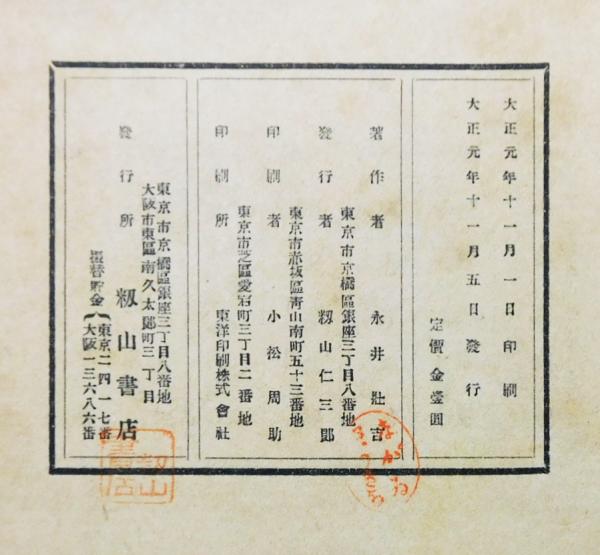 大正元年十一月一日印刷
大正元年十一月五日發行
定價金壹圓
著作者 永井壯吉
東京市京橋區銀座三丁目八番地
發行者 籾山仁三郎
東京市赤坂區靑山南町五十三番地
印刷者 小松周助
東京市芝區愛宕町三丁目二番地
印刷所 東洋印刷株式會社
東京市京橋區銀座三丁目八番地
大阪市東區南久太郎町三丁目
發行所 籾山書店
振替貯金
東京二四一七番
大阪一三六八六番
籾山書店
ながゐ